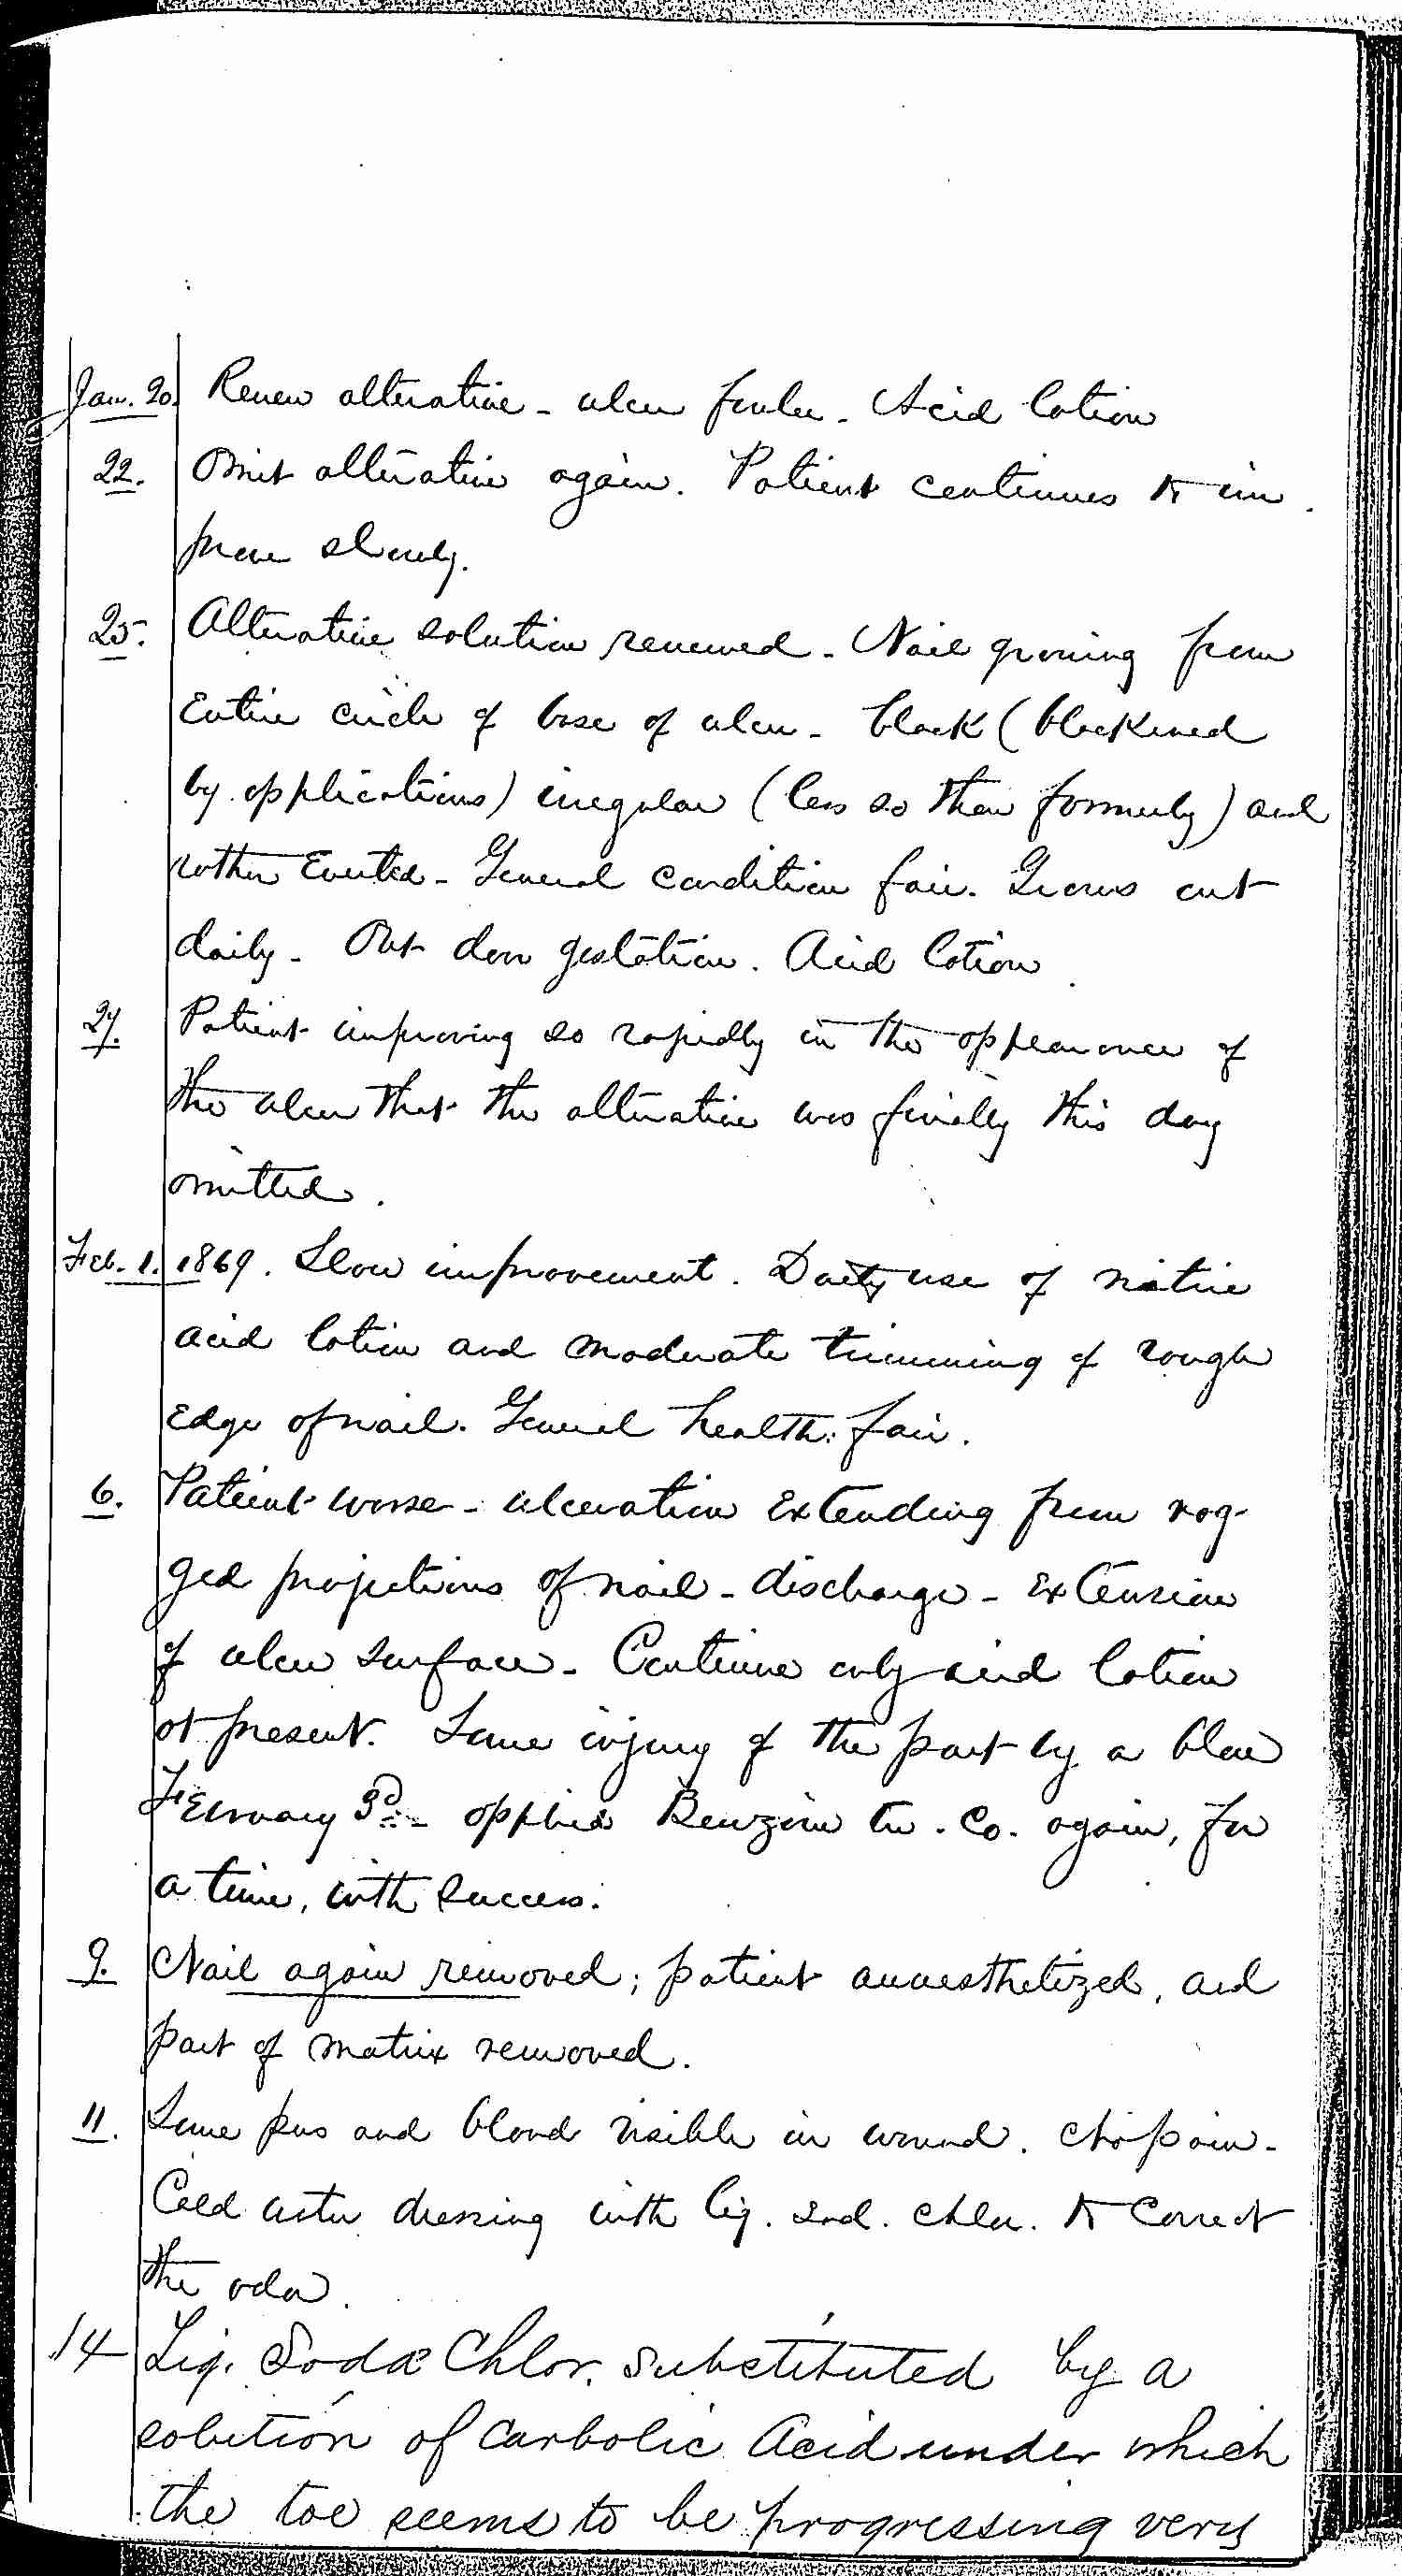 Jan. 20. Renew alterative - ulcer fouler - Acid lotion
22. Omit alterative again. Patient continues to im-
prove slowly.
25. Alterative solution renewed - Nail growing from
Entire circle of base of ulcer - black (blackened
by applications) irregular (less so than formerly) and
rather Everted - General condition fair. Grows out
daily - Out door gestation. Acid lotion
27. Patient improving so rapidly in the appearance of
the ulcer that the alterative was finally this day
omitted.
Feb. 1. 1869. Slow improvement. Daily use of nitric
acid lotion and moderate trimming of rough
Edge of nail. General health fair.
6. Patient worse - ulceration Extending from rag-
ged projections of nail - discharge - Extension
of ulcer surface - Continue only acid lotion
at present. Some injury of the part by a blow
February 3d - applied Benzoin tr. Co. again, for
a time, with success.
9. Nail again removed; patient anaesthetized, and
part of matrix removed.
11. Some pus and blood visible in wound. No pain -
Cold water dressing with liq. sod. chlor. to Correct
the odor.
14 Liq. Sodæ Chlor. substituted by a
solution of Carbolic Acid under which
the toe seems to be progressing very